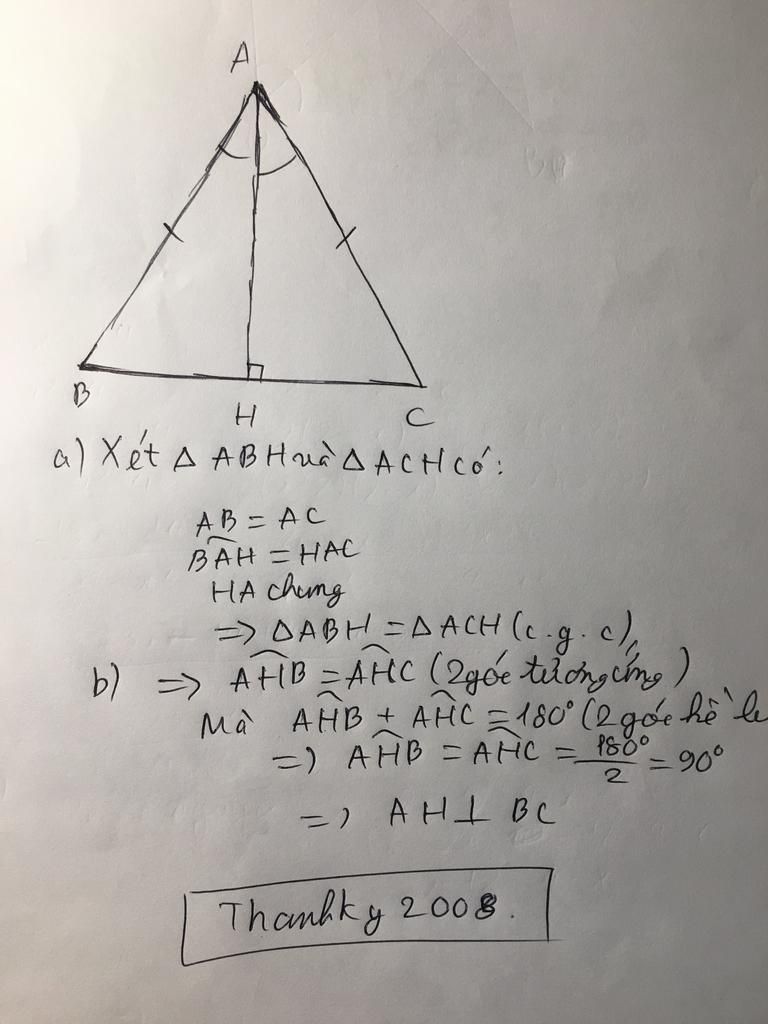 A
B
H
C
a) Xét Δ ABH và Δ ACH có:
AB = AC
BÂH = HAC
HA chung
=> ΔABH = ΔACH (c.g.c)
b) => AĤB = AĤC (2 góc tương ứng)
Mà AĤB + AĤC = 180° (2 góc kề
=) AĤB = AĤC = 180°/2 = 90°
=) AH ⊥ BC
Thanhky 2008.